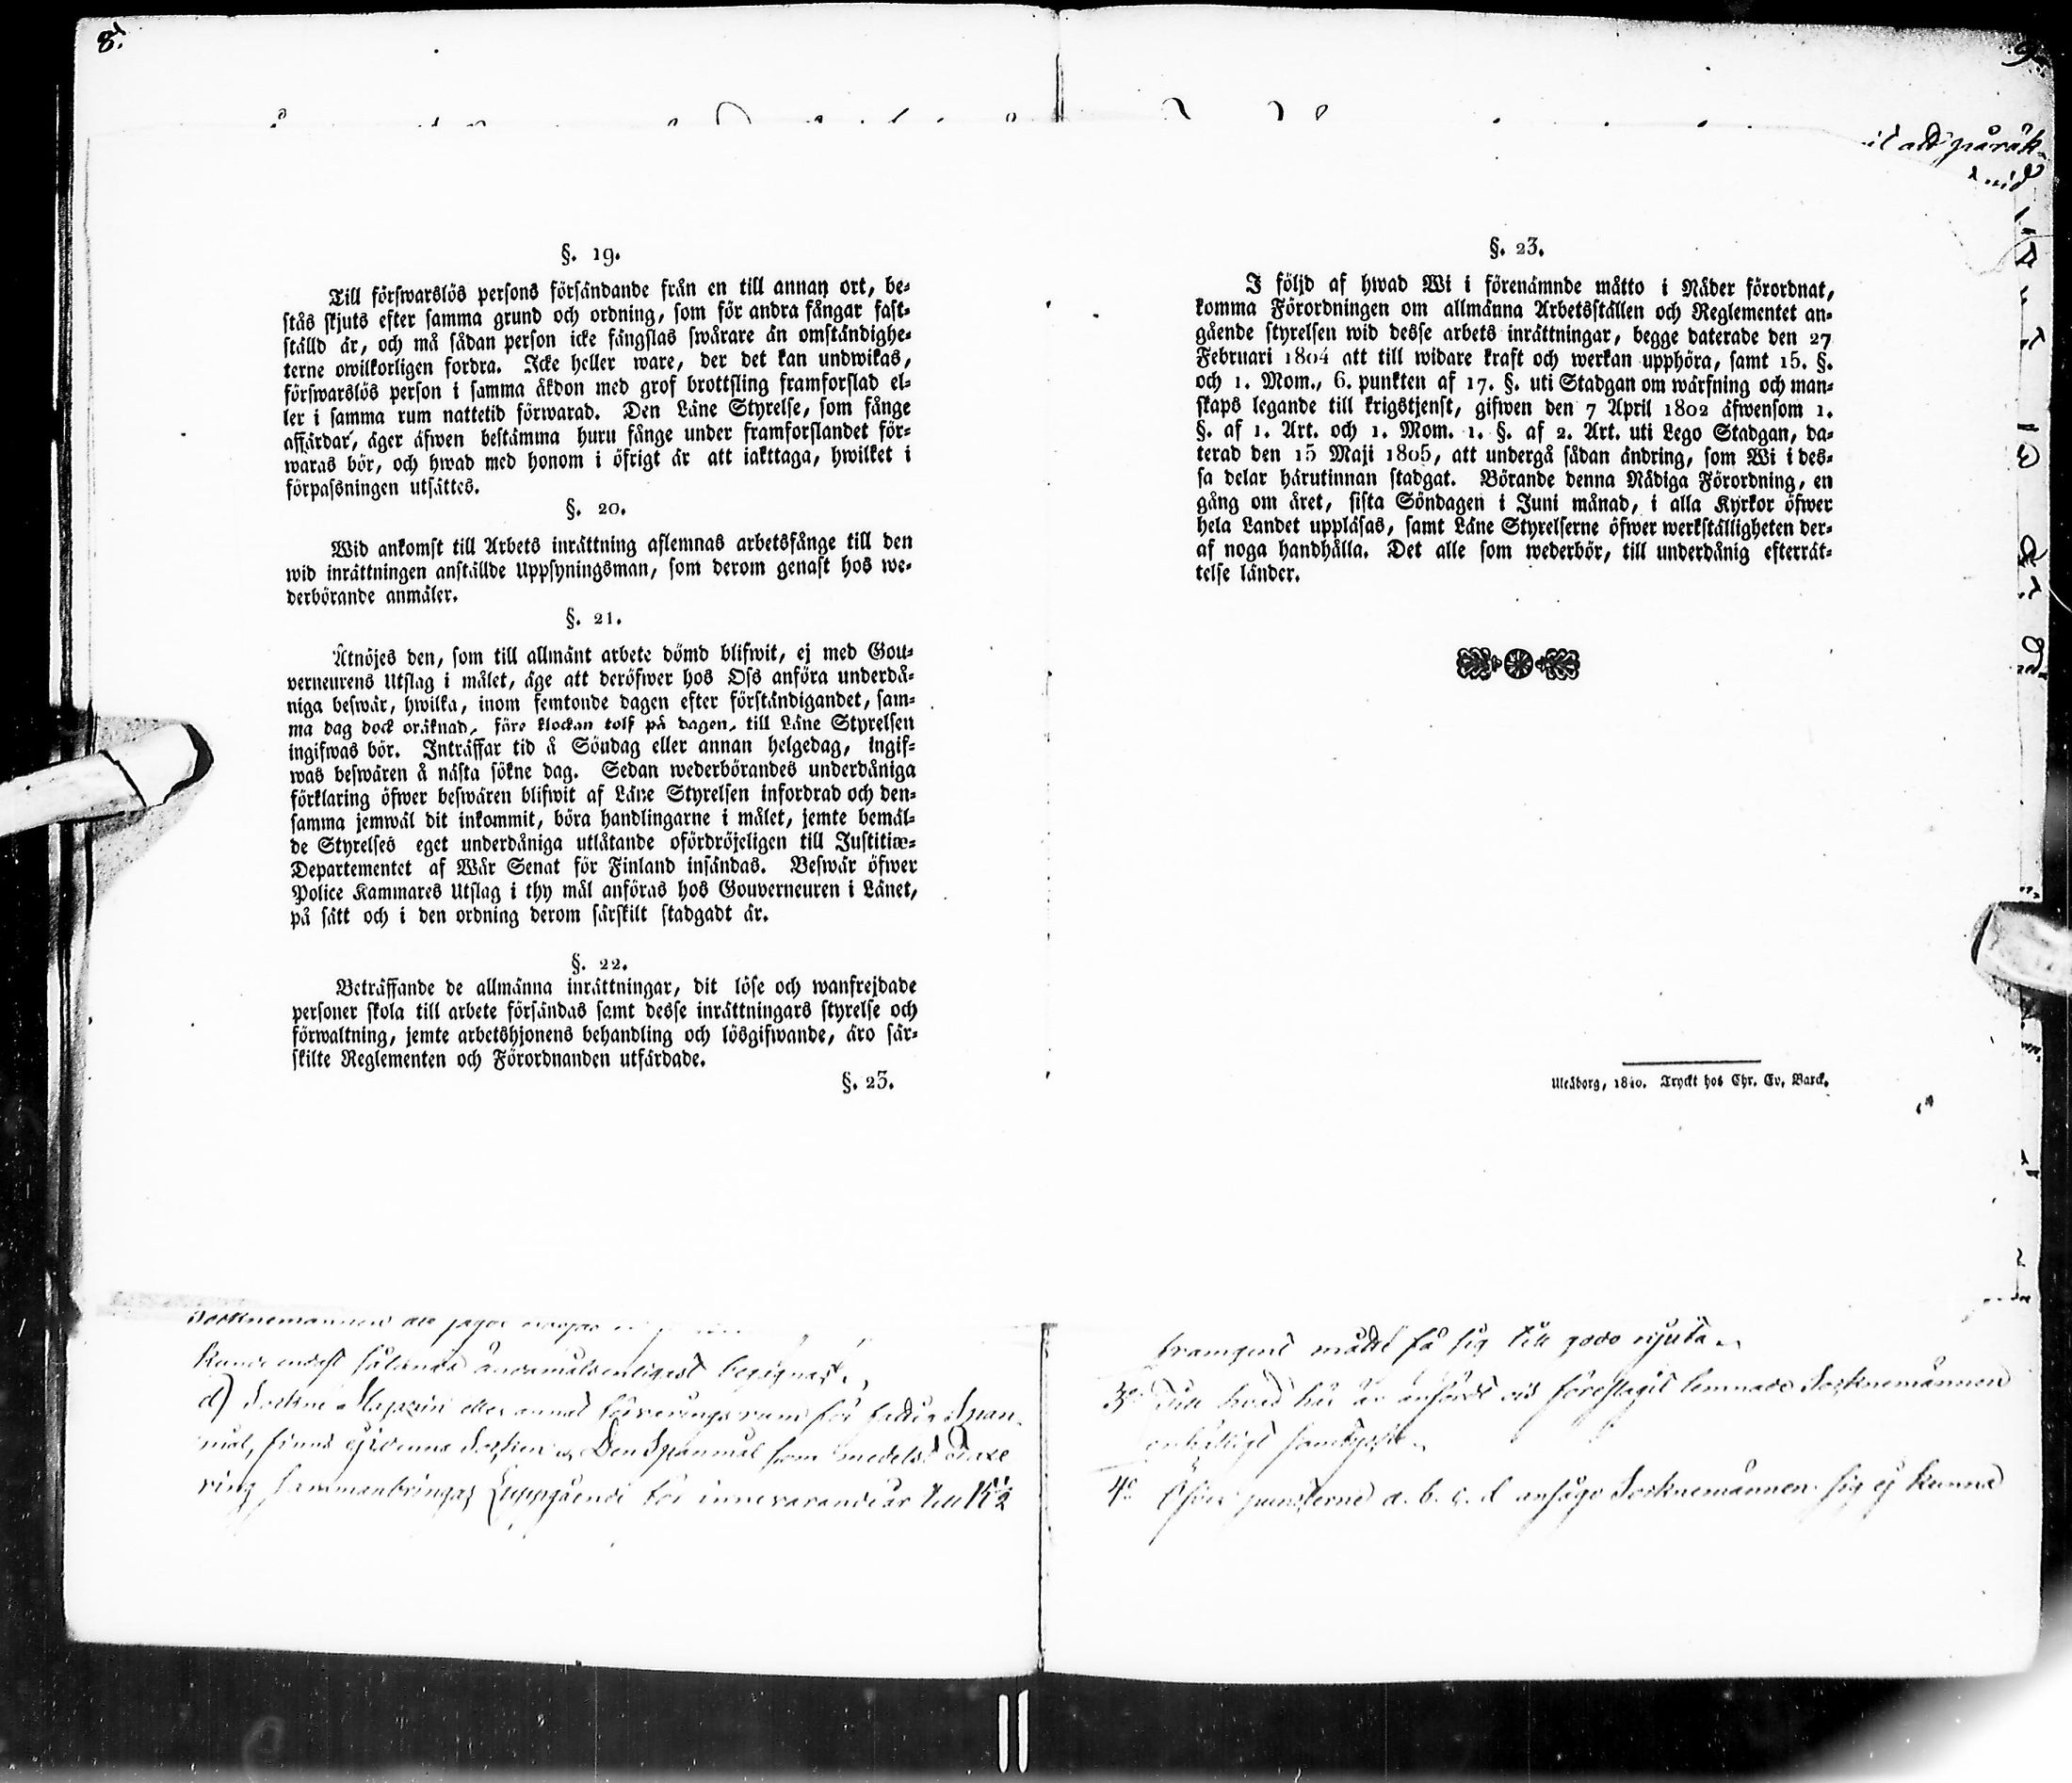 8.
§. 19.
Till förswarslös persons försändande från en till annan ort, be-
stås skjuts efter samma grund och ordning, som för andra fångar fast-
ställd är, och må sådan person icke fängslas swårare än omständighe-
terne owilkorligen fordra. Icke heller ware, der det kan undwikas,
förswarslös person i samma åkdon med grof brottsling framforslad el-
ler i samma rum nattetid förwarad. Den Läne Styrelse, som fånge
affärdar, äger äfwen bestämma huru fånge under framforslandet för-
waras bör, och hwad med honom i öfrigt är att iakttaga, hwilket i
förpassningen utsättes.
§. 20.
Wid ankomst till Arbets inrättning aflemnas arbetsfånge till den
wid inrättningen anställde Uppsyningsman, som derom genast hos we-
derbörande anmäler.
§. 21.
Åtnöjes den, som till allmänt arbete dömd blifwit, ej med Gou-
verneurens Utslag i målet, äge att deröfwer hos Oss anföra underdå-
niga beswär, hwilka, inom femtonde dagen efter förständigandet, sam-
ma dag dock oräknad, före klockan tolf på dagen, till Läne Styrelsen
ingifwas bör. Inträffar tid å Söndag eller annan helgedag, ingif-
was beswären å nästa sökne dag. Sedan wederbörandes underdåniga
förklaring öfwer beswären blifwit af Läne Styrelsen infordrad och den-
samma jemwäl dit inkommit, böra handlingarne i målet, jemte bemäl-
de Styrelses eget underdåniga utlåtande ofördröjeligen till Justitiæ-
Departementet af Wår Senat för Finland insändas. Beswär öfwer
Police Kammares Utslag i thy mål anföras hos Gouverneuren i Länet,
på sätt och i den ordning derom särskilt stadgadt är.
§. 22.
Beträffande de allmänna inrättningar, dit löse och wanfrejdade
personer skola till arbete försändas samt desse inrättningars styrelse och
förwaltning, jemte arbetshjonens behandling och lösgifwande, äro sär-
skilte Reglementen och Förordnanden utfärdade.
§. 23.
Socknemannen
kunde endast sålunda ändamålsenligast begagnas.
d) Sockne Magazin eller annat förvarings rum för Span-
mål, finns ej denna Socken. Den Spanmål som medelst
ring sammanbringas, uppgående för innevarande år till
9.
att påräk-
§. 23.
I följd af hwad Wi i förenämnde måtto i Nåder förordnat,
komma Förordningen om allmänna Arbetsställen och Reglementet an-
gående styrelsen wid desse arbets inrättningar, begge daterade den 27
Februari 1804 att till widare kraft och werkan upphöra, samt 15. §.
och 1. Mom., 6. punkten af 17. §. uti Stadgan om wärfning och man-
skaps legande till krigstjenst, gifwen den 7 April 1802 äfwensom 1.
§. af 1. Art. och 1. Mom. 1. §. af 2. Art. uti Lego Stadgan, da-
terad den 15 Maji 1805, att undergå sådan ändring, som Wi i des-
sa delar härutinnan stadgat. Börande denna Nådiga Förordning, en
gång om året, sista Söndagen i Juni månad, i alla Kyrkor öfwer
hela Landet uppläsas, samt Läne Styrelserne öfwer werkställigheten der-
af noga handhålla. Det alle som wederbör, till underdånig efterrät-
telse länder.
Uleåborg, 1840. Tryckt hos Chr. Ev. Barck.
framgent måtte få sig till godo njuta.
3o Till hvad här är anfördt vid föreslagit lemnade Socknemännen
enhälligt samtycke.
4o Öfver puncterne a. b. c. d ansågo Socknemännen sig ej kunna